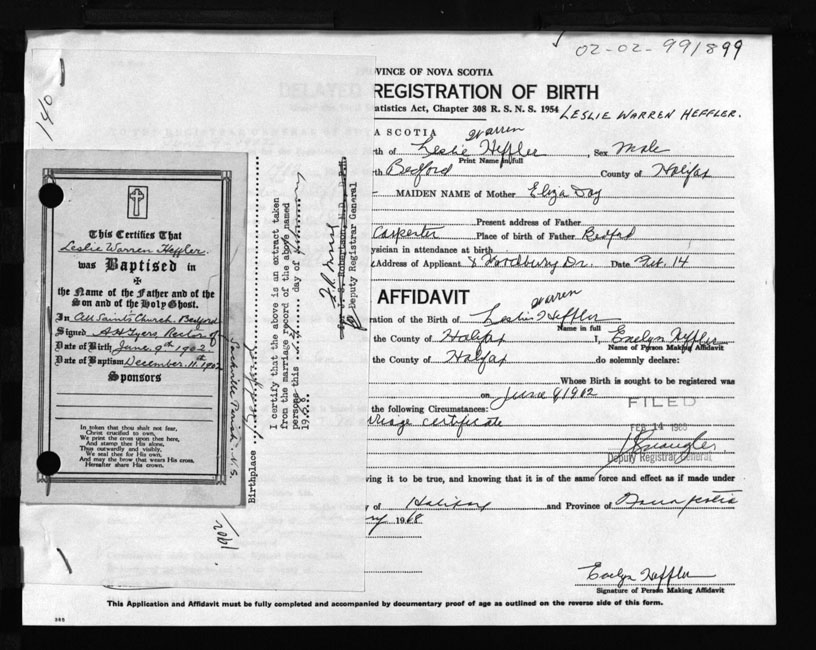 02-02-991899
140
PROVINCE OF NOVA SCOTIA
DELAYED REGISTRATION OF BIRTH
atistics Act, Chapter 308 R. S. N. S. 1954 LESLIE WARREN HEFFLER.
A SCOTIA
Warren
th of Leslie Heffler, Sex Male
Print Name in full
Bedford County of Halifax
MAIDEN NAME of Mother Eliza Day
Present address of Father
Carpenter Place of birth of Father Bedford
ysician in attendance at birth
Address of Applicant 8 Woodbury Dr. Date Feb. 14
AFFIDAVIT
Warren
ration of the Birth of Leslie Heffler
Name in full
the County of Halifax I, Evelyn Heffler
Name of Person Making Affidavit
the County of Halifax do solemnly declare:
Whose Birth is sought to be registered was
on June 9 1902
FILED
the following Circumstances:
FEB 14 1968
riage certificate
Deputy Registrar General
ving it to be true, and knowing that it is of the same force and effect as if made under
y of Halifax and Province of Nova Scotia
ry 1968
Evelyn Heffler
Signature of Person Making Affidavit
This Application and Affidavit must be fully completed and accompanied by documentary proof of age as outlined on the reverse side of this form.
This Certifies That
Leslie Warren Heffler.
was Baptised in
the Name of the Father and of the
Son and of the Holy Ghost.
In All Saints Church, Bedford
Signed Rector of
Sackville Parish, N.S.
Date of Birth June 9th 1902
Date of Baptism December 11th 1902
Sponsors
In token that thou shalt not fear,
Christ crucified to own,
We print the cross upon thee here,
And stamp thee His alone,
Thus outwardly and visibly,
We seal thee for His own,
And may the brow that wears His cross,
Hereafter share His crown.
Birthplace Bedford
I certify that the above is an extract taken
from the marriage record of the above named
persons this day of
19
J. S. Robertson, M.D., D.P.H.
Deputy Registrar General